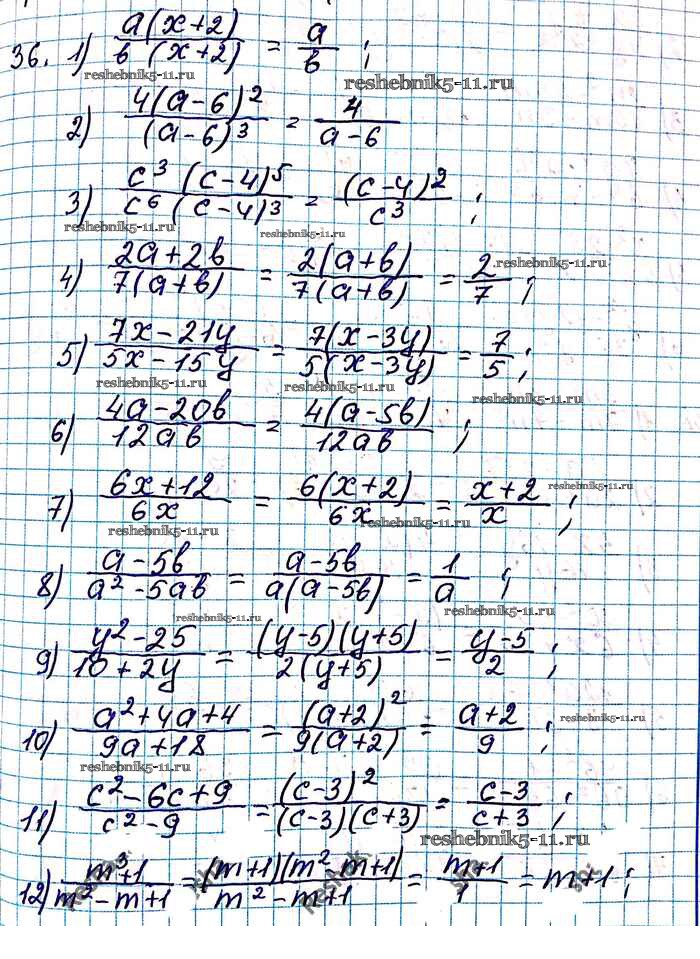 36. 1) a(x+2)/b(x+2) = a/b ;
reshebnik5-11.ru reshebnik5-11.ru
2) 4(a-6)²/(a-6)³ = 4/a-6
3) c³(c-4)⁵/c⁶(c-4)³ = (c-4)²/c³ ;
reshebnik5-11.ru reshebnik5-11.ru
4) 2a+2b/7(a+b) = 2(a+b)/7(a+b) = 2/7 ;
reshebnik5-11.ru
5) 7x-21y/5x-15y = 7(x-3y)/5(x-3y) = 7/5 ;
reshebnik5-11.ru reshebnik5-11.ru reshebnik5-11.ru
6) 4a-20b/12ab = 4(a-5b)/12ab ;
7) 6x+12/6x = 6(x+2)/6x = x+2/x ;
reshebnik5-11.ru
reshebnik5-11.ru reshebnik5-11.ru
8) a-5b/a²-5ab = a-5b/a(a-5b) = 1/a ;
reshebnik5-11.ru reshebnik5-11.ru
9) y²-25/10+2y = (y-5)(y+5)/2(y+5) = y-5/2 ;
10) a²+4a+4/9a+18 = (a+2)²/9(a+2) = a+2/9 ;
reshebnik5-11.ru
reshebnik5-11.ru
11) c²-6c+9/c²-9 = (c-3)²/(c-3)(c+3) = c-3/c+3 ;
reshebnik5-11.ru
12) m³+1/m²-m+1 = (m+1)(m² m+1)/m²-m+1 = m+1/1 = m+1 ;